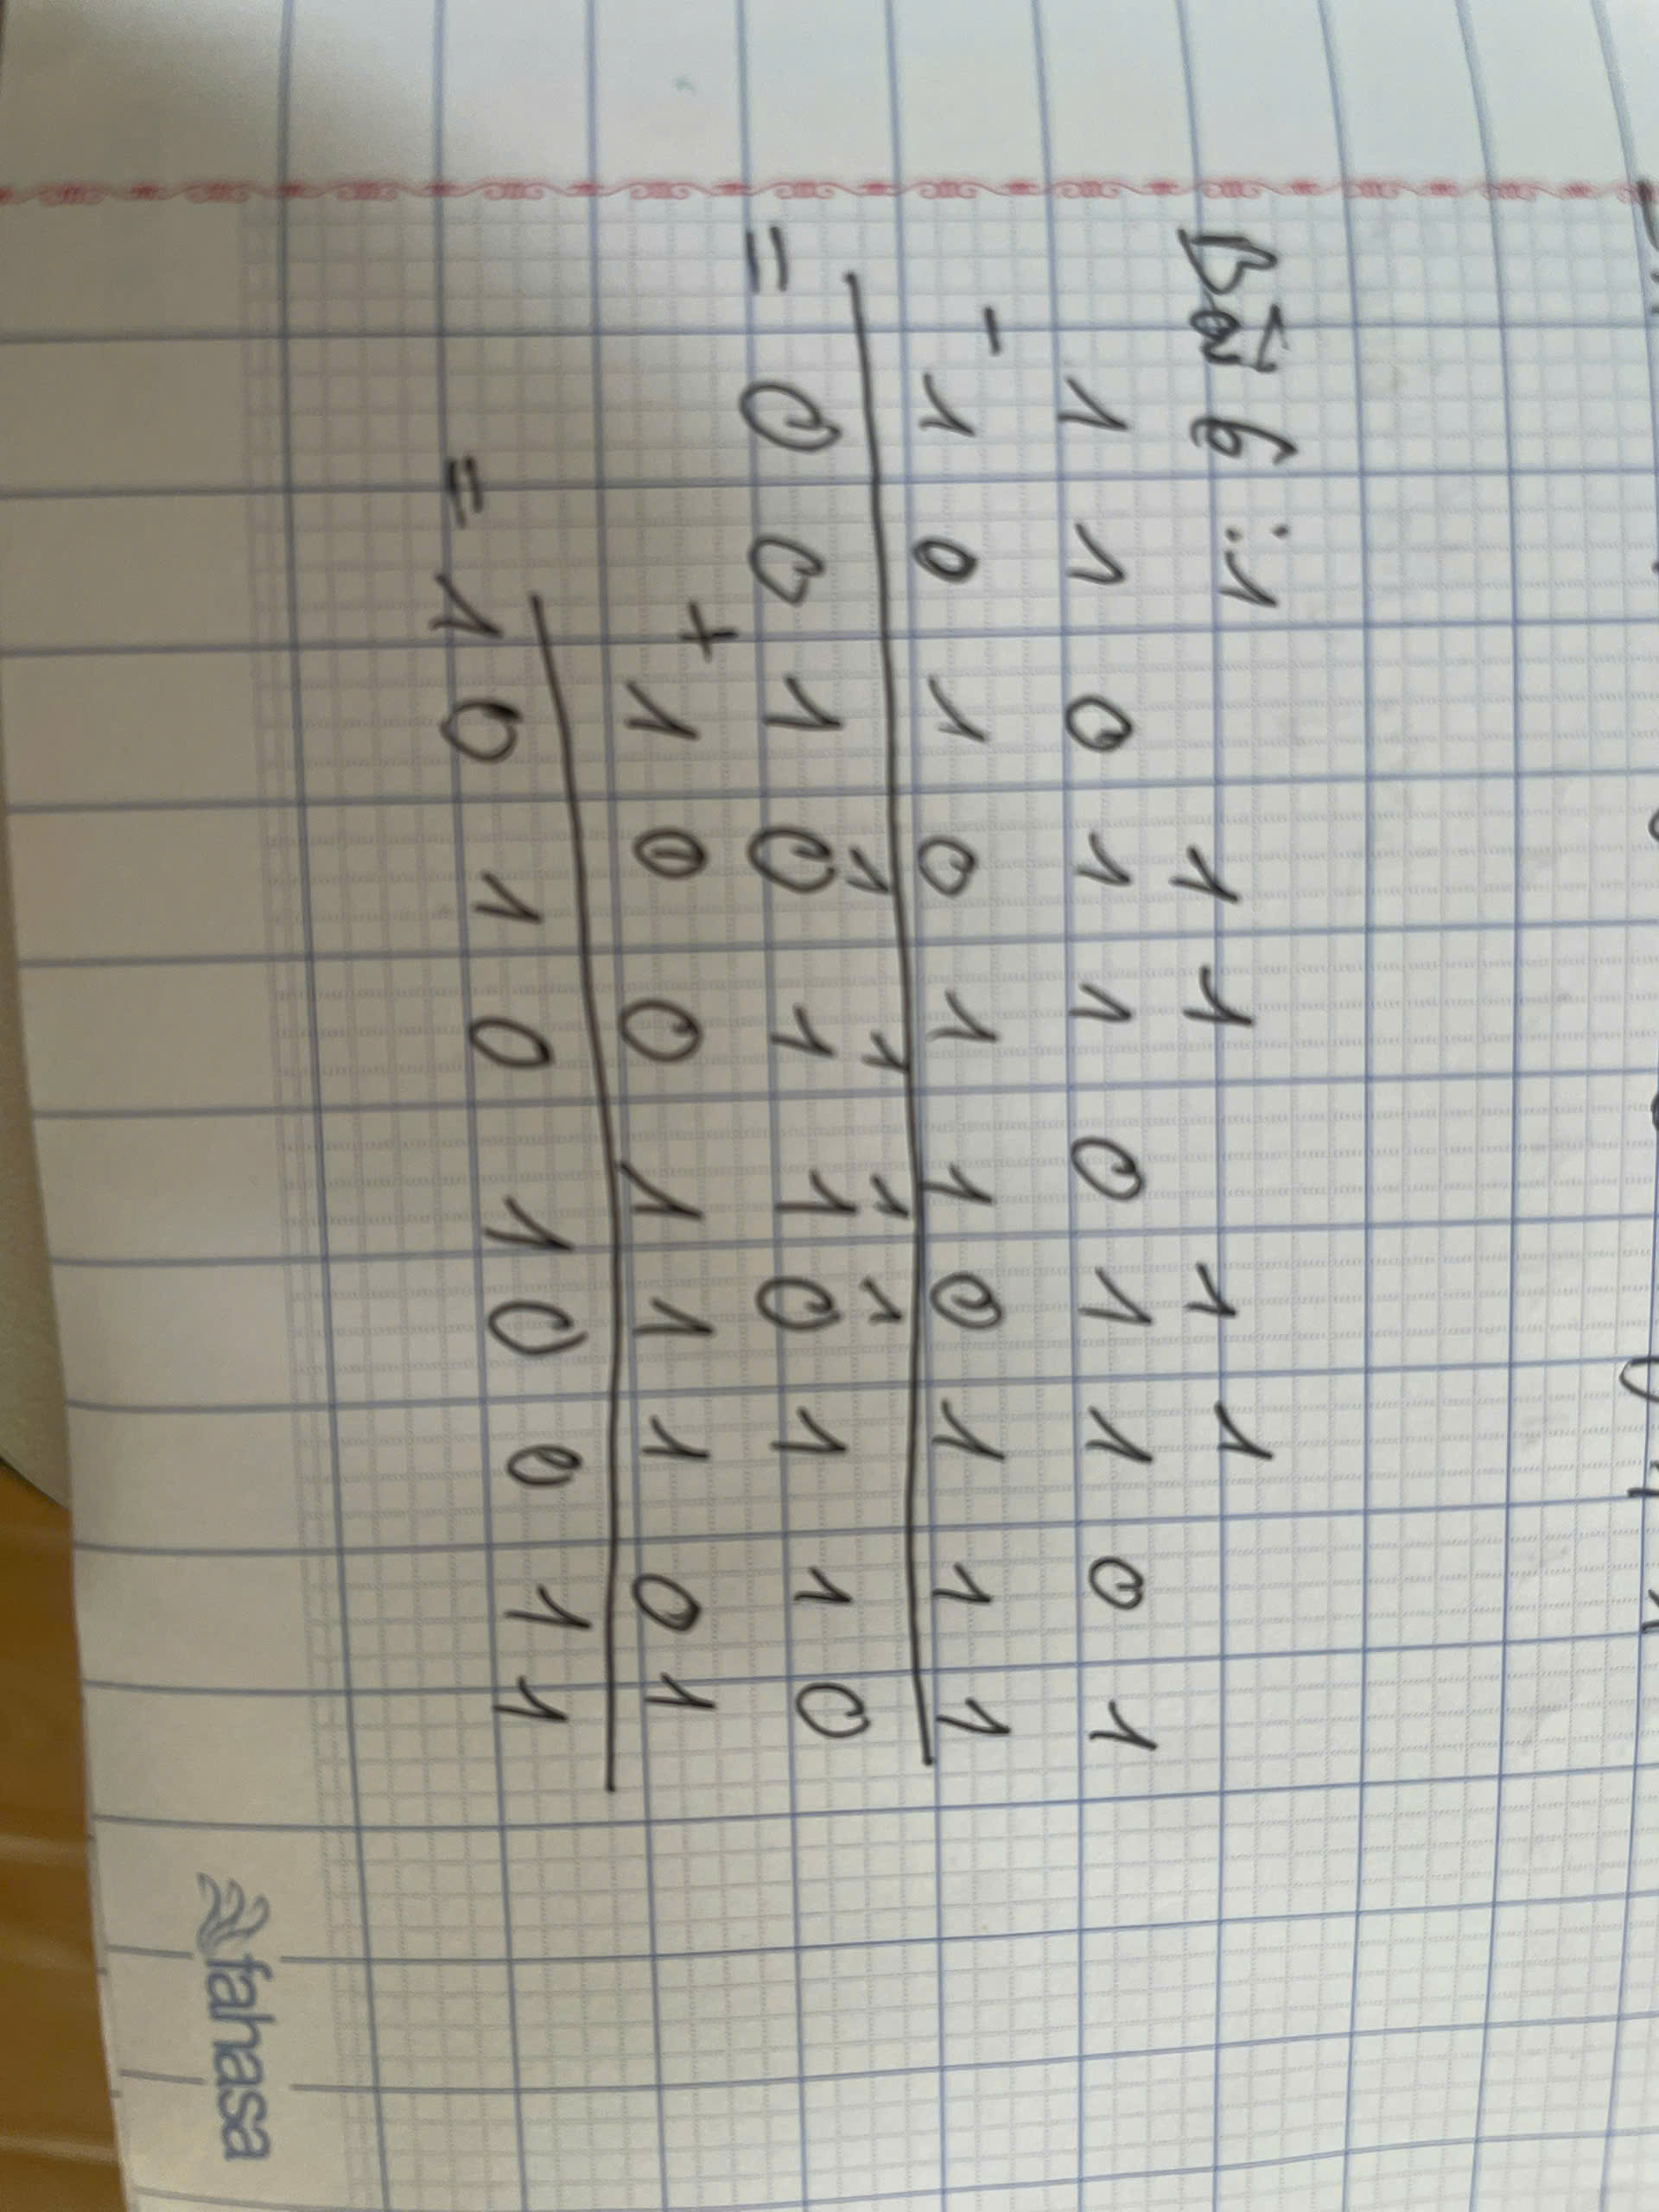 Bài 6 : 1 1 1 1 1
1 1 0 1 1 0 1 1 0 1
- 1 0 1 0 1 1 0 1 1 1
1 1 1 1
= 0 0 1 0 1 1 0 1 1 0
+ 1 0 0 1 1 1 0 1
= 1 0 1 0 1 0 0 1 1
fahasa